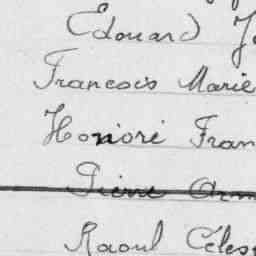 Edouard J
Francois Marie
Honoré Fran
Pierre Arm
Raoul Céles